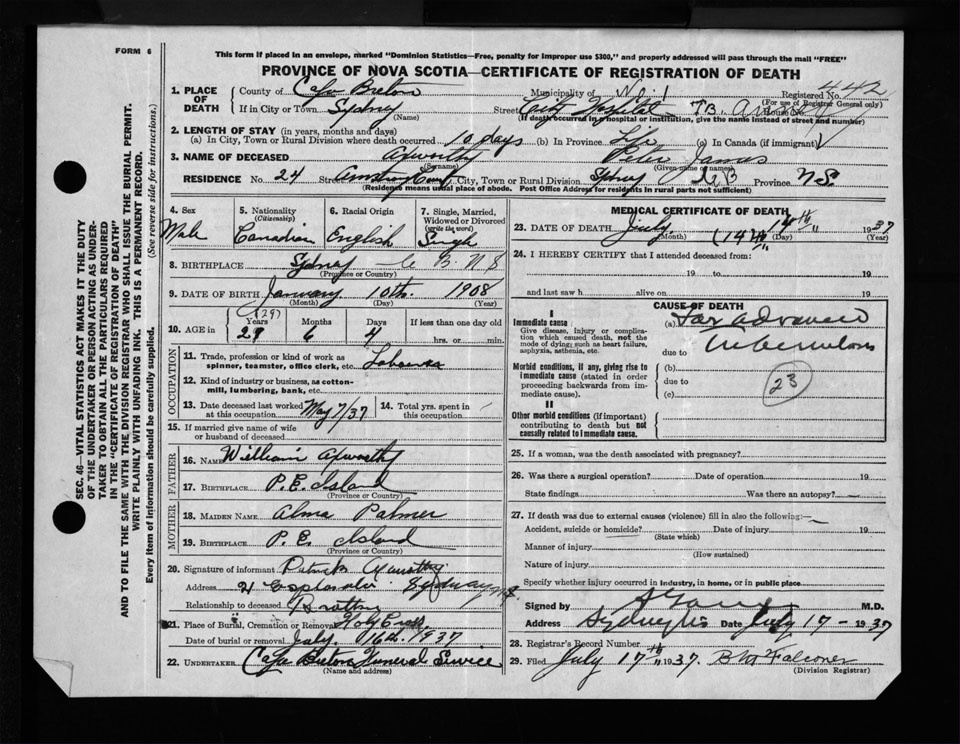 FORM 6
This form if placed in an envelope, marked "Dominion Statistics—Free, penalty for improper use $300," and properly addressed will pass through the mail "FREE"
PROVINCE OF NOVA SCOTIA—CERTIFICATE OF REGISTRATION OF DEATH
1. PLACE OF DEATH
County of Cape Breton Municipality of Registered No. 442
(For use of Registrar General only)
If in City or Town Sydney Street City Hospital TB. Annex
(Name) (If death occurred in hospital or institution, give the name instead of street and number)
2. LENGTH OF STAY (in years, months and days)
(a) In City, Town or Rural Division where death occurred 10 days (b) In Province Life (c) In Canada (if immigrant)
3. NAME OF DECEASED Axworthy Peter James
(Surname) (Given name or names)
RESIDENCE No. 24 Street Armstrong Court City, Town or Rural Division Sydney C B Province N.S.
(Residence means usual place of abode. Post Office Address for residents in rural parts not sufficient)
4. Sex
Male
5. Nationality (Citizenship)
Canadian
6. Racial Origin
English
7. Single, Married, Widowed or Divorced (write the word)
Single
8. BIRTHPLACE Sydney C B. N S
(Province or Country)
9. DATE OF BIRTH January 10th. 1908
(Month) (Day) (Year)
10. AGE in
(29)
Years Months Days If less than one day old
29 6 4 hrs. or min.
OCCUPATION
11. Trade, profession or kind of work as spinner, teamster, office clerk, etc. Labourer
12. Kind of industry or business, as cotton-mill, lumbering, bank, etc.
13. Date deceased last worked at this occupation May 7/37
14. Total yrs. spent in this occupation
15. If married give name of wife or husband of deceased
FATHER
16. NAME William Axworthy
17. BIRTHPLACE P.E. Island
(Province or Country)
MOTHER
18. MAIDEN NAME Alma Palmer
19. BIRTHPLACE P.E. Island
(Province or Country)
20. Signature of informant Patrick Axworthy
Address 21 Esplanade Sydney N.S.
Relationship to deceased Brother
21. Place of Burial, Cremation or Removal Holy Cross
Date of burial or removal July 16th. 1937
22. UNDERTAKER Cape Breton Funeral Service
(Name and address)
MEDICAL CERTIFICATE OF DEATH
23. DATE OF DEATH July 14th 1937
(Month) (14th) (Day) (Year)
24. I HEREBY CERTIFY that I attended deceased from:
19 to 19
and last saw h alive on 19
CAUSE OF DEATH
I
Immediate cause
Give disease, injury or complication which caused death, not the mode of dying; such as heart failure, asphyxia, asthenia, etc.
(a) Far advanced
due to tuberculosis
Morbid conditions, if any, giving rise to immediate cause (stated in order proceeding backwards from immediate cause).
(b)
due to
(c)
23
II
Other morbid conditions (if important) contributing to death but not causally related to immediate cause.
25. If a woman, was the death associated with pregnancy?
26. Was there a surgical operation? Date of operation 19
State findings Was there an autopsy?
27. If death was due to external causes (violence) fill in also the following:—
Accident, suicide or homicide? Date of injury 19
(State which)
Manner of injury
(How sustained)
Nature of injury
Specify whether injury occurred in industry, in home, or in public place
Signed by M.D.
Address Sydney NS Date July 17 - 1937
28. Registrar's Record Number
29. Filed July 17th 1937. B M Falconer
(Division Registrar)
SEC. 46—VITAL STATISTICS ACT MAKES IT THE DUTY
OF THE UNDERTAKER OR PERSON ACTING AS UNDER-
TAKER TO OBTAIN ALL THE PARTICULARS REQUIRED
IN THE "CERTIFICATE OF REGISTRATION OF DEATH"
AND TO FILE THE SAME WITH THE DIVISION REGISTRAR WHO SHALL ISSUE THE BURIAL PERMIT.
WRITE PLAINLY WITH UNFADING INK. THIS IS A PERMANENT RECORD.
Every item of information should be carefully supplied. (See reverse side for instructions.)